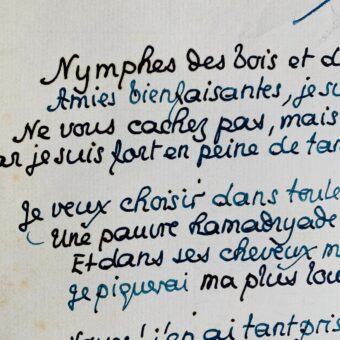 Nymphes des bois et d
Amies bienfaisantes, je su
Ne vous cachez pas, mais
ar je suis fort en peine de tan
Je veux choisir dans toute
Une pauvre hamadryade
Et dans ses cheveux m
Je piquerai ma plus lou
j'en ai tant pris